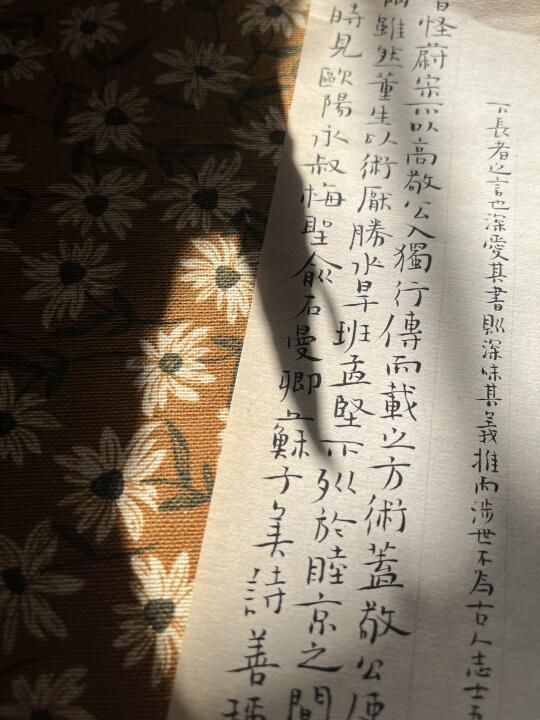 下長者之言也深愛其書則深味其義推而涉世不為古人志士
怪蔚宗不以高敬公入獨行傳而載之方術蓋敬公便
雖然董生以術厭勝水旱班孟堅不以列於眭京之間
時見歐陽永叔梅聖俞石曼卿蘇子美詩善